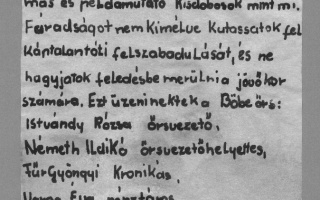 más és példamutató Kisdobosok mint mi.
Fáradságot nem Kímélve Kutassatok fel
Kántalantóti felszabadulását, és ne
hagyjátok feledésbe merülni a jövő kor
számára. Ezt üzeni nektek a Böbe őrs:
Istvándy Rózsa őrsvezető,
Németh Ildikó őrsvezetőhelyettes,
Für Gyöngyi Krónikás,
Éva pénztáros